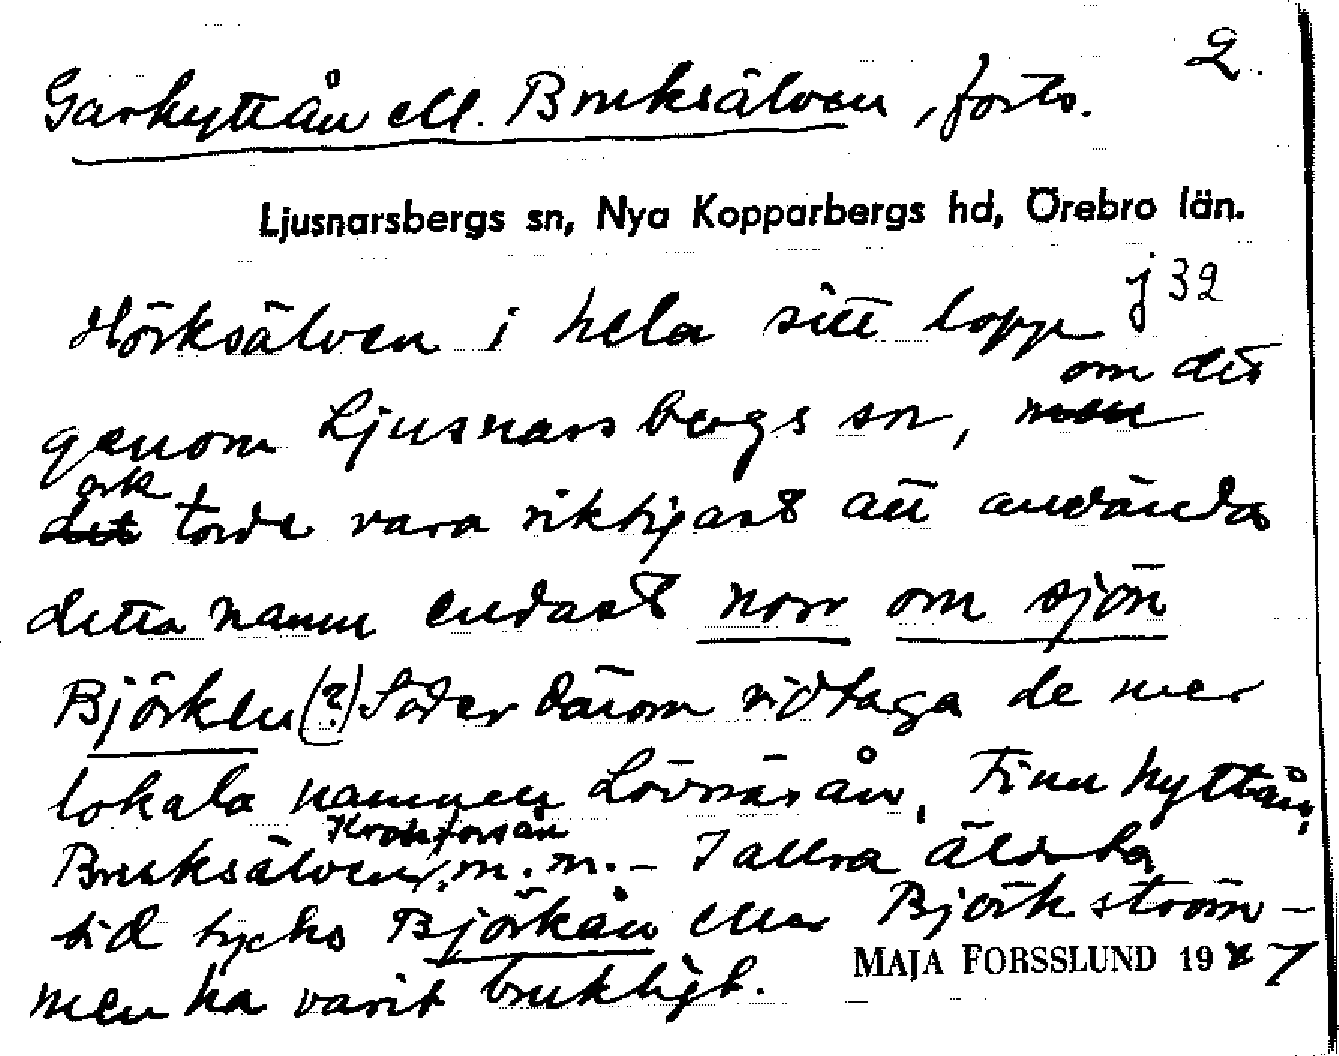 2.
Garhyttån ell. Bruksälven, forts.
Ljusnarsbergs sn, Nya Kopparbergs hd, Örebro län.
j 32
Hörksälven i hela sitt lopp
om det
genom Ljusnarsbergs sn, men
ock
det torde vara riktigast att använda
detta namn endast norr om sjön
Björken (?) Söder därom vidtaga de mer
lokala namnen Lövnäsån, Finnhyttån,
Krokforsån
Bruksälven, m. m. – I allra äldsta
tid tycks Björkån eller Björkström-
men ha varit brukligt.
MAJA FORSSLUND 19 7